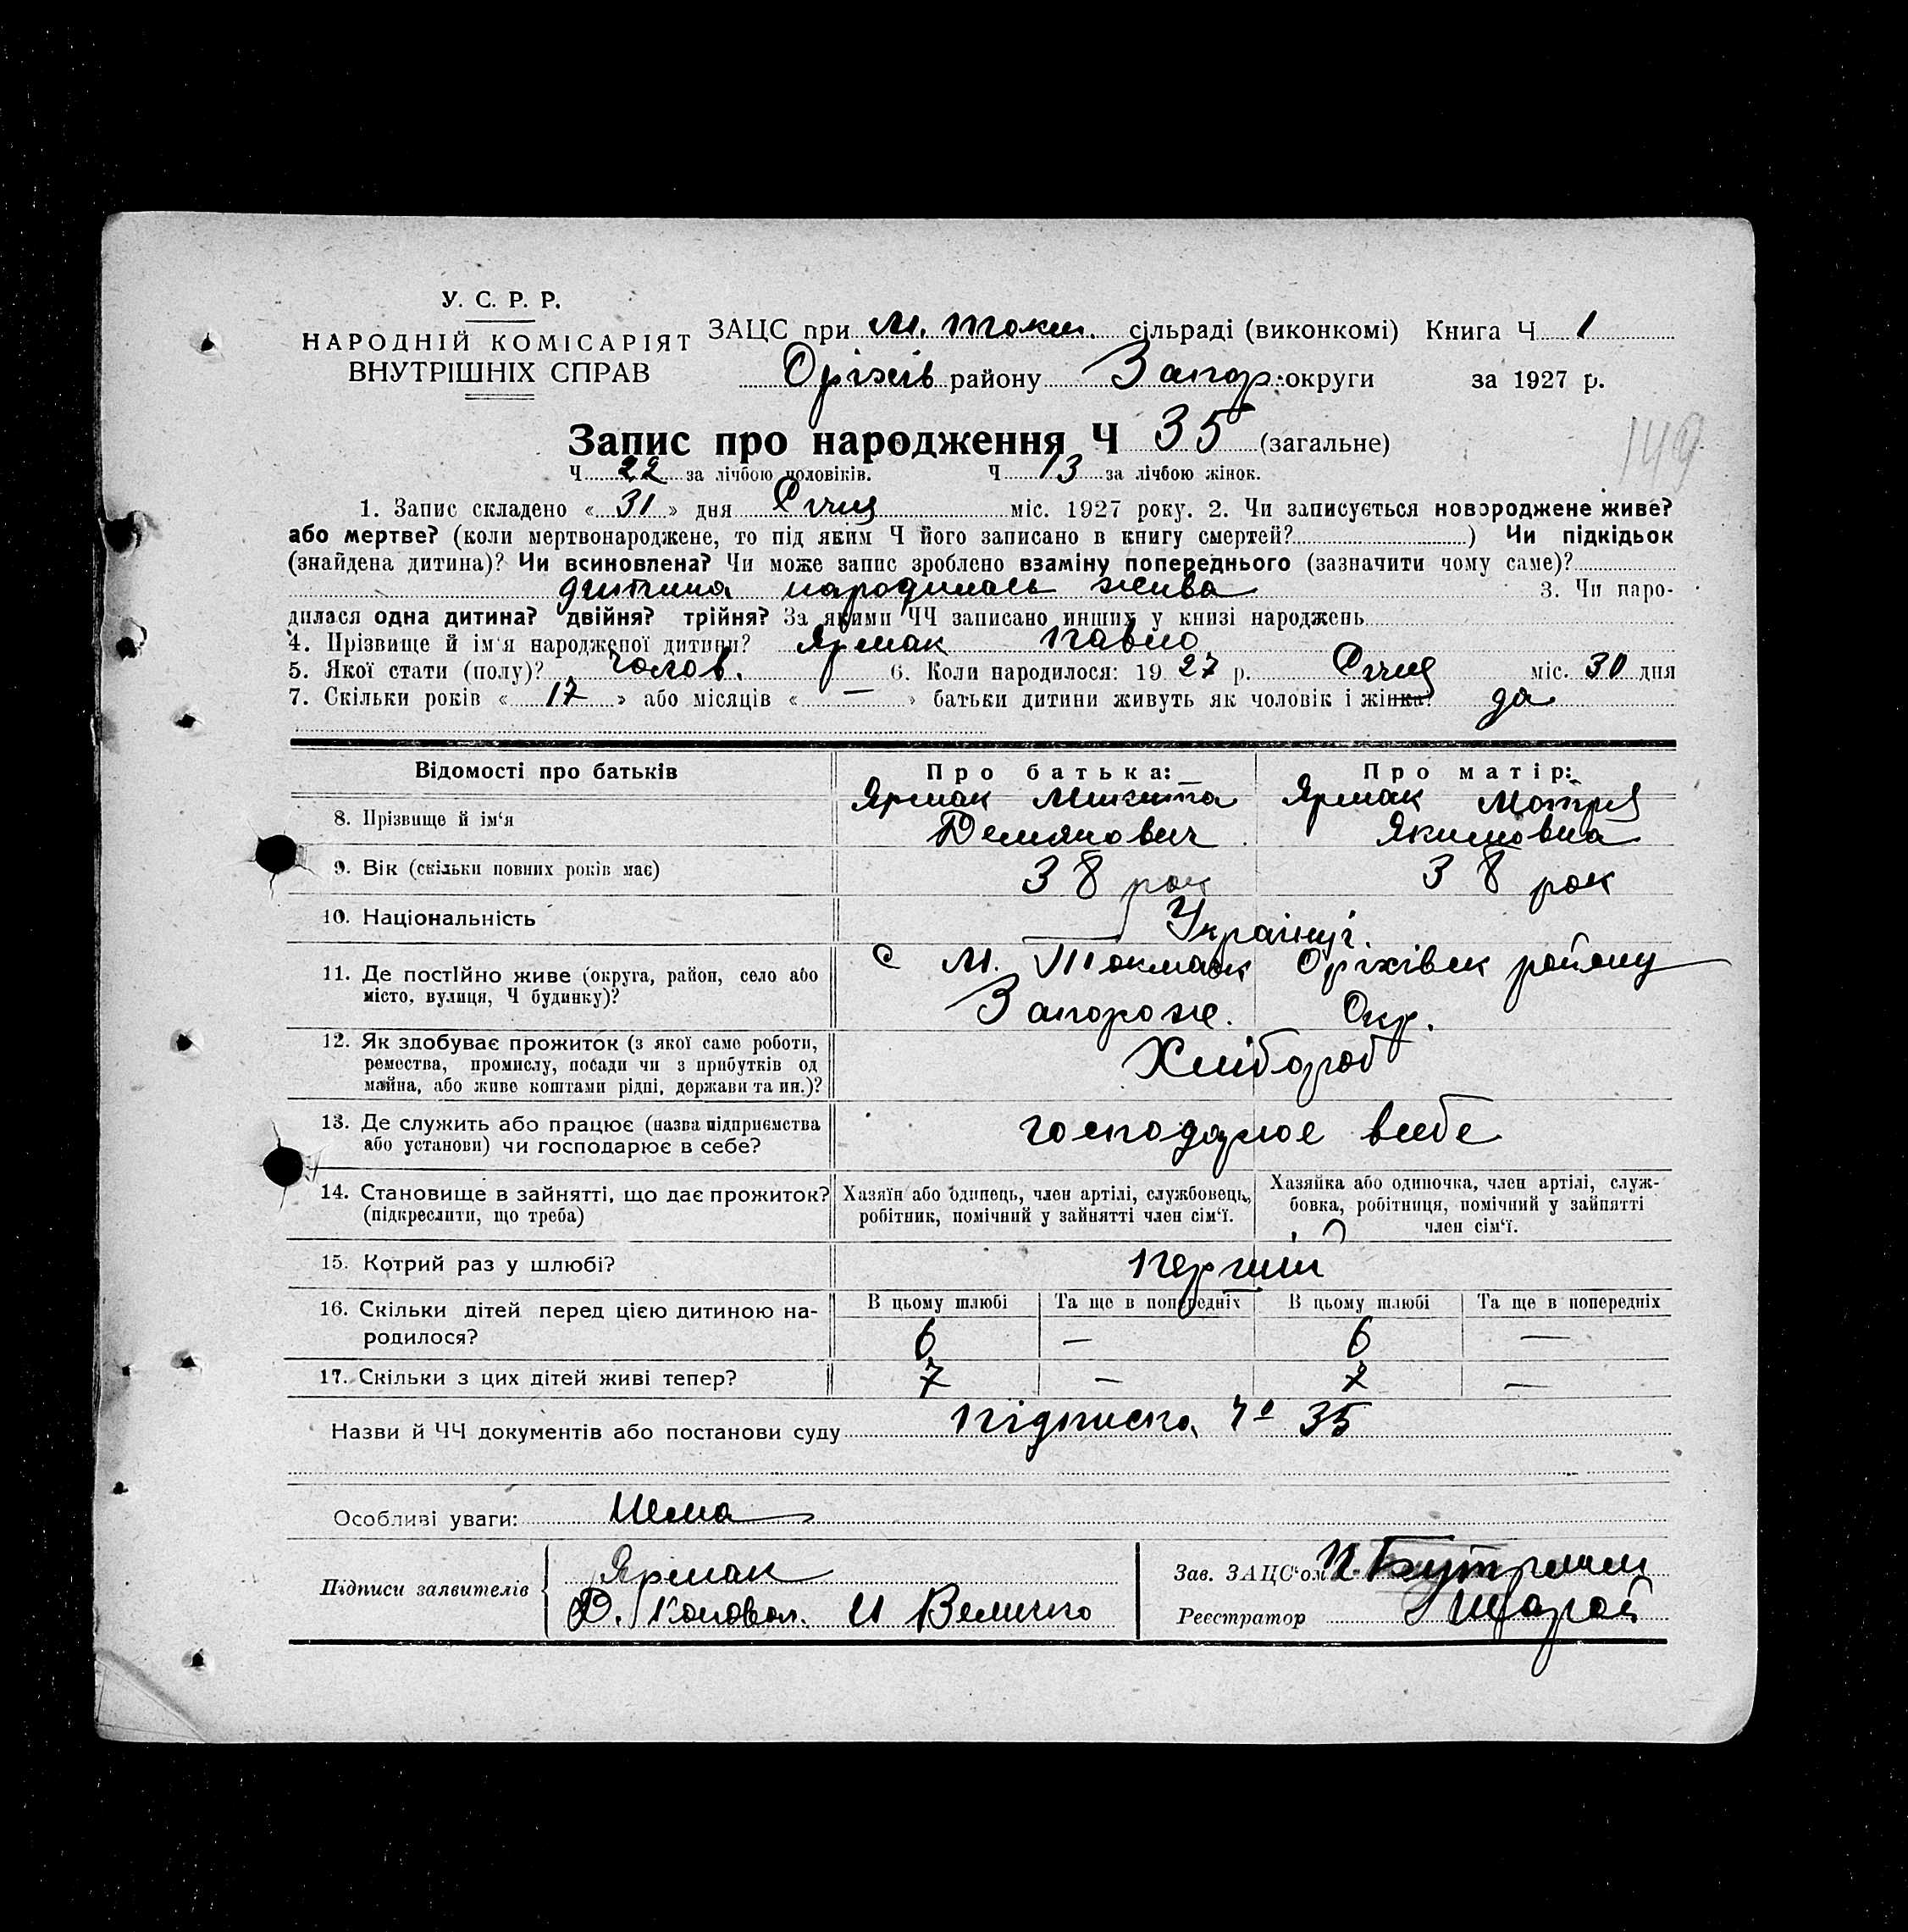 У. С. Р. Р.
НАРОДНІЙ КОМІСАРІЯТ
ВНУТРІШНІХ СПРАВ
ЗАЦС при М. Токм. сільраді (виконкомі) Книга Ч 1
Оріхів району Запор. округи за 1927 р.
Запис про народження Ч 35 (загальне)
149
Ч 22 за лічбою чоловіків. Ч 13 за лічбою жінок.
1. Запис складено «31» дня Січня міс. 1927 року. 2. Чи записується новороджене живе?
або мертве? (коли мертвонароджене, то під яким Ч його записано в книгу смертей?) Чи підкідьок
(знайдена дитина)? Чи всиновлена? Чи може запис зроблено взаміну попереднього (зазначити чому саме)?
дитина народилась жива 3. Чи наро-
дилася одна дитина? двійня? трійня? За якими ЧЧ записано инших у книзі народжень
4. Прізвище й ім'я народженої дитини? Ярмак Павло
5. Якої стати (полу)? Чолов. 6. Коли народилося: 1927 р. Січня міс. 30 дня
7. Скільки років «17» або місяців «—» батьки дитини живуть як чоловік і жінка? да
Відомості про батьків Про батька: Про матір:
8. Прізвище й ім'я Ярмак Микита Ярмак Мотря
Демянович Якимовна
9. Вік (скільки повних років має) 38 рок 38 рок
10. Національність Українці.
11. Де постійно живе (округа, район, село або місто, вулиця, Ч будинку)? с М. Токмак Оріхівск району
Запорож. Окр.
12. Як здобуває прожиток (з якої саме роботи,
ремества, промислу, посади чи з прибутків од
майна, або живе коштами рідні, держави та ин.)? Хлібороб
13. Де служить або працює (назва підприємства
або установи) чи господарює в себе? господарює всебе
14. Становище в зайнятті, що дає прожиток?
(підкреслити, що треба)
Хазяїн або одинець, член артілі, службовець,
робітник, помічний у зайнятті член сім'ї.
Хазяйка або одиночка, член артілі, служ-
бовка, робітниця, помічний у зайнятті
член сім'ї.
15. Котрий раз у шлюбі? перший
16. Скільки дітей перед цією дитиною на-
родилося?
В цьому шлюбі Та ще в попередніх В цьому шлюбі Та ще в попередніх
6 — 6 —
17. Скільки з цих дітей живі тепер? 7 — 7 —
Назви й ЧЧ документів або постанови суду підписка 35
Особливі уваги: Нема
Підписи заявителів Ярмак
Д. Коновал. И Величко
Зав. ЗАЦС'ом
Реєстратор